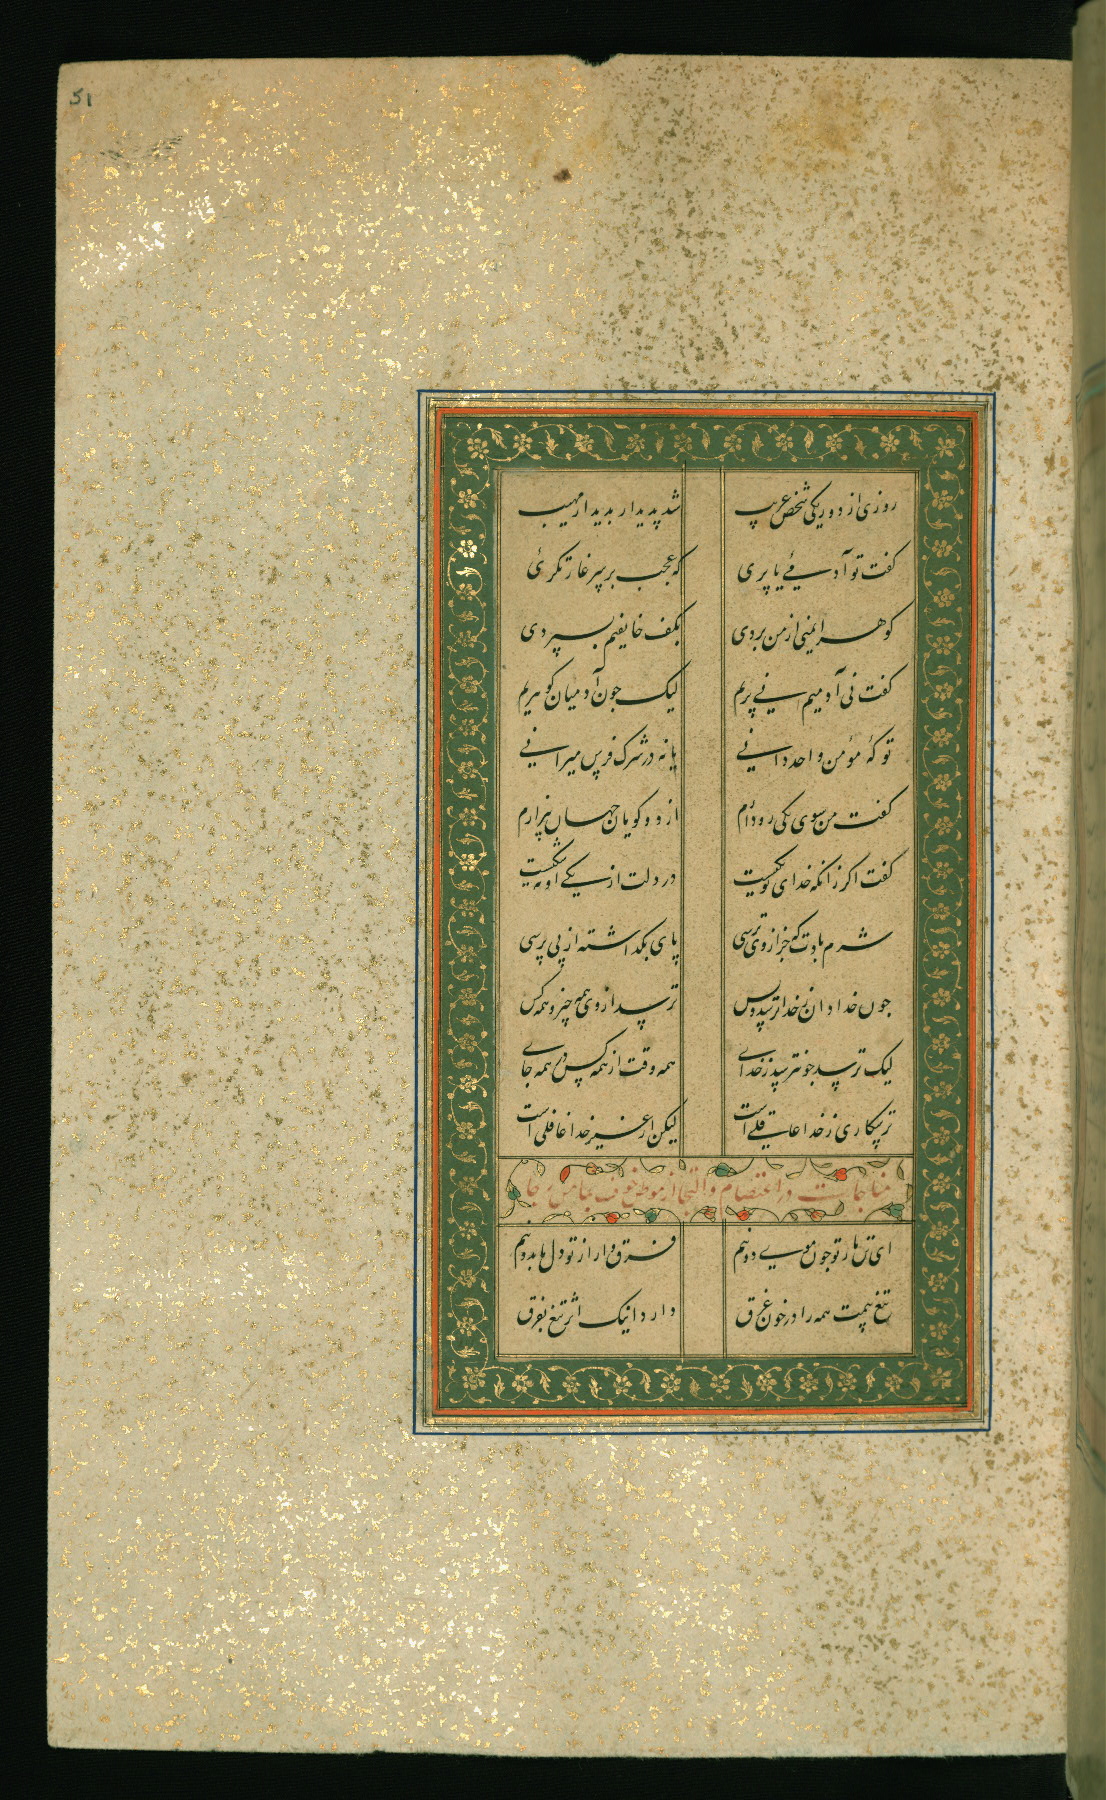 51
روزی از دور یکی شخص غریب شد پدیدار بدیدار مهیب
گفت تو آدمیٔ یا پری که عجب بر سر غارتگریٔ
گوهر ایمنی از من بردی بکف خایفیم بسپردی
گفت نی آدمیم نی پریم لیک چون آدمیان گوهریم
تو که مؤمن واحد دانی یا نه در شرک فرس میرانی
گفت من سوی یکی رو دارم از دو گویان جهان بیزارم
گفت اگر زانکه خدای تو یکیست در دلت از یکی او نه شکیست
شرم بادت که جز از وی ترسی پای بگذاشته از پی پرسی
چون خدادان ز خدا ترسد و بس ترسد از وی همه چیز و همه کس
لیک ترسد چو نترسد ز خدای همه وقت از همه کس در همه جای
ترسکاری ز خدا عاقلی است لیکن از غیر خدا غافلی است
مناجات در اعتصام و التجا از موطن خوف بمامن رجا
ای تن ما ز تو چون موی دو نیم فرق وار از تو دل ما بدو نیم
تیغ بیمت همه را در خون غرق دارد اینک اثر تیغ بفرق